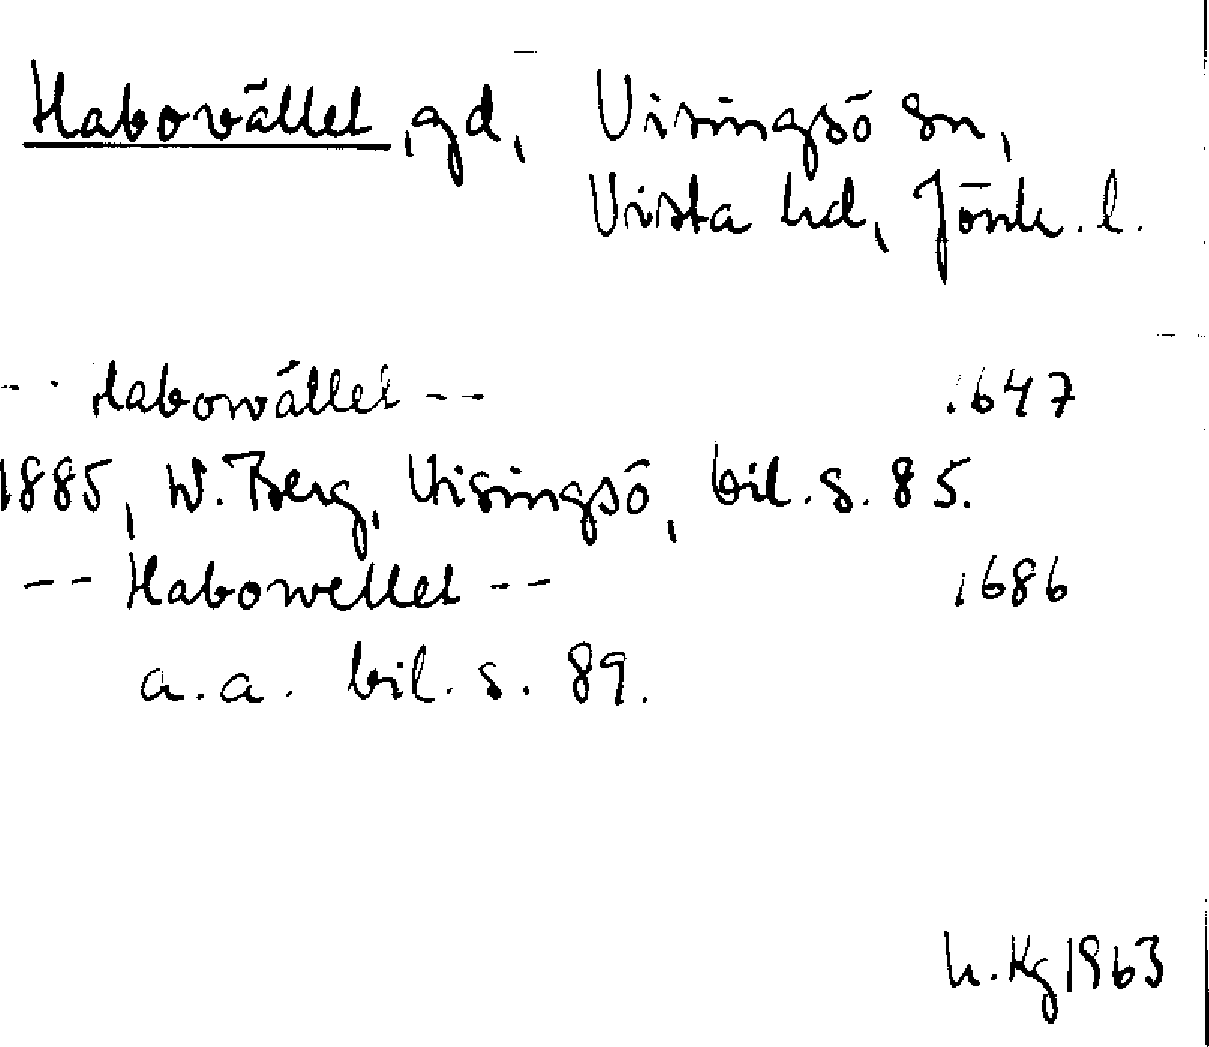 Habovället, gd, Visingsö sn,
Vista hd, Jönk. l.
-- Habowället -- 1647
1885, W. Berg, Visingsö, bil. s. 85.
-- Habowellet -- 1686
a. a. bil. s. 89.
h. Kg 1963